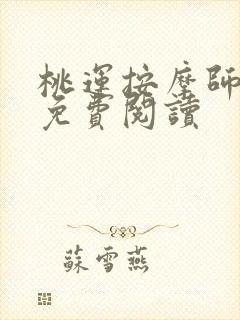 桃運按摩師
免費閱讀
蘇雪燕